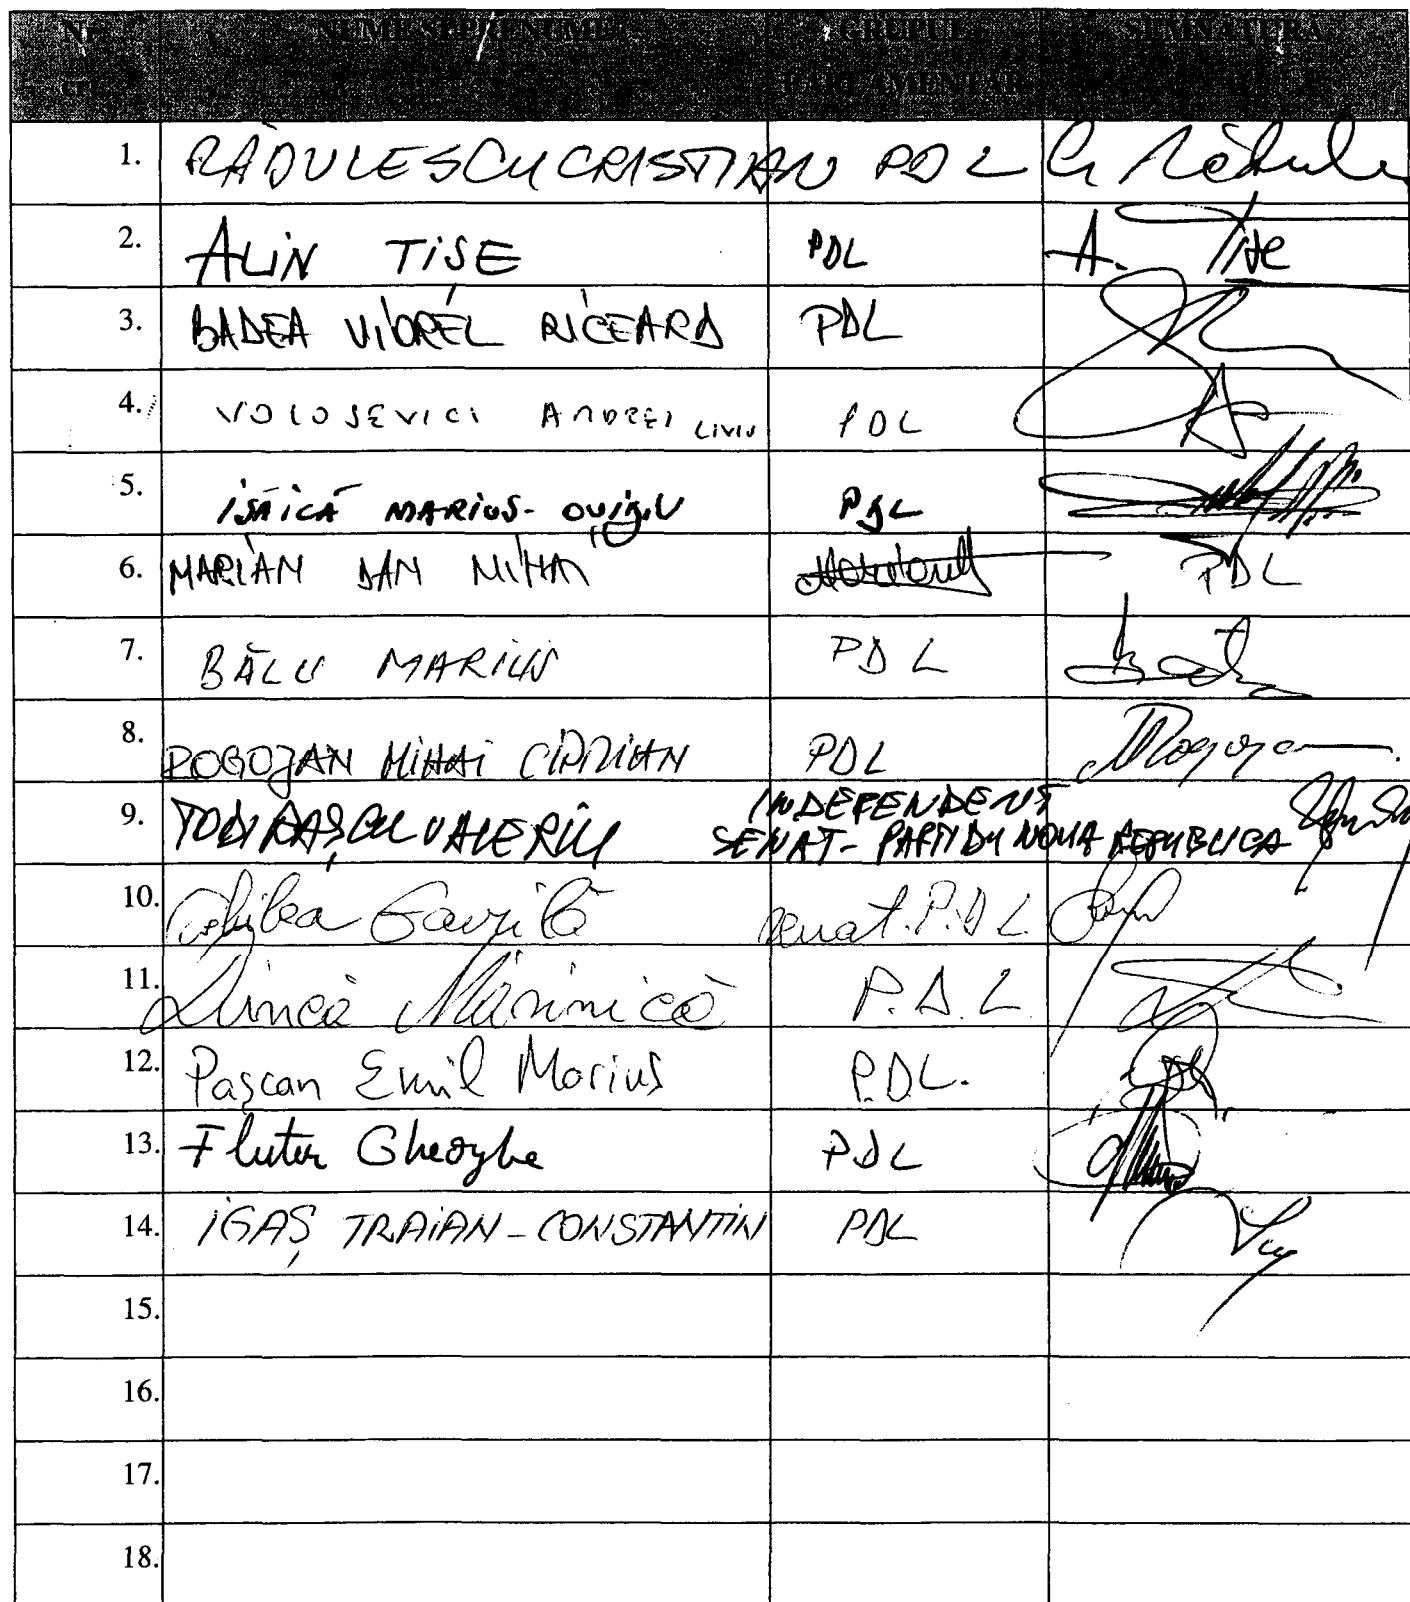 Nr. NUME SI PRENUME GRUPUL SEMNATURA
crt. PARLAMENTAR
1. RĂDULESCU CRISTIAN PDL
2. ALIN TISE PDL A. Tise
3. BADEA VIOREL RICEARD PDL
4. VOLOSEVICI ANDREI LIVIU PDL
5. ISĂICĂ MARIUS-OVIDIU PDL
6. MARIAN DAN MIHAI PDL
7. BĂLU MARIUS PDL
8. POGOJAN MIHAI CIPRIAN PDL
9. TODIRAȘCU VALERIU INDEPENDENT
SENAT - PARTIDU NOUA REPUBLICA
10. Gavrilă senat. P.D.L.
11. Dincă Mărinică P.D.L.
12. Pașcan Emil Marius P.D.L.
13. Flutur Gheorghe PDL
14. IGAȘ TRAIAN-CONSTANTIN PDL
15.
16.
17.
18.